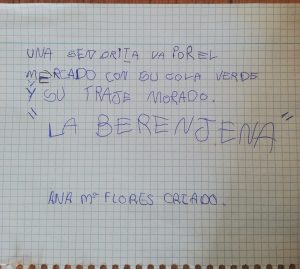 UNA SENORITA VA POR EL
MERCADO CON SU COLA VERDE
Y SU TRAJE MORADO.
"LA BERENJENA"
ANA Mª FLORES CRIADO.